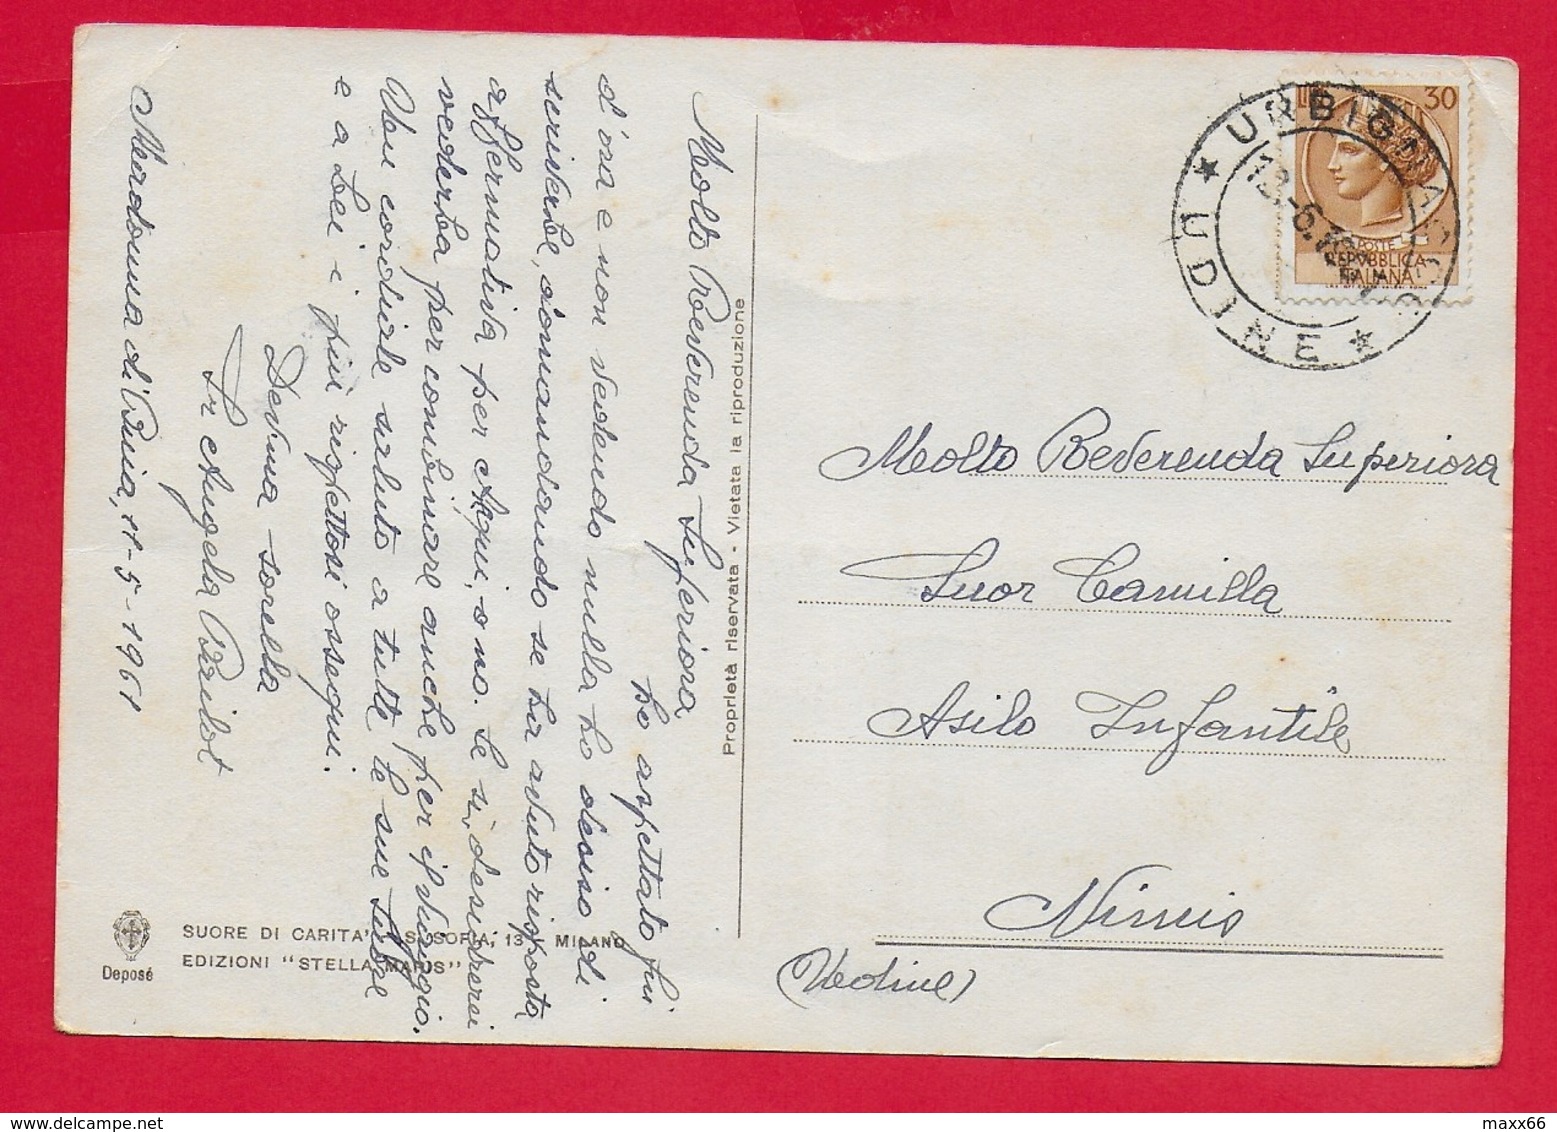 Molto Reverenda Superiora
ho aspettato fin
d'ora e non vedendo nulla ho deciso di
scriverLe, domandando se ha avuto risposta
affermativa per Acqui, o no. Se sì, desidererei
vederLa per combinare anche per il viaggio.
Un cordiale saluto a tutte le sue
e a Lei i più rispettosi ossequi.
Dev.ma sorella
Sr Angela
Madonna di Buia, 11-5-1961
Proprietà riservata - Vietata la riproduzione
SUORE DI CARITA' S. SOFIA, 13 MILANO
EDIZIONI "STELLA MARIS"
Deposé
30
POSTE
REPVBBLICA
ITALIANA
URBIGNACCO
UDINE
Molto Reverenda Superiora
Suor Camilla
Asilo Infantile
Nimis
(Udine)
maxx66